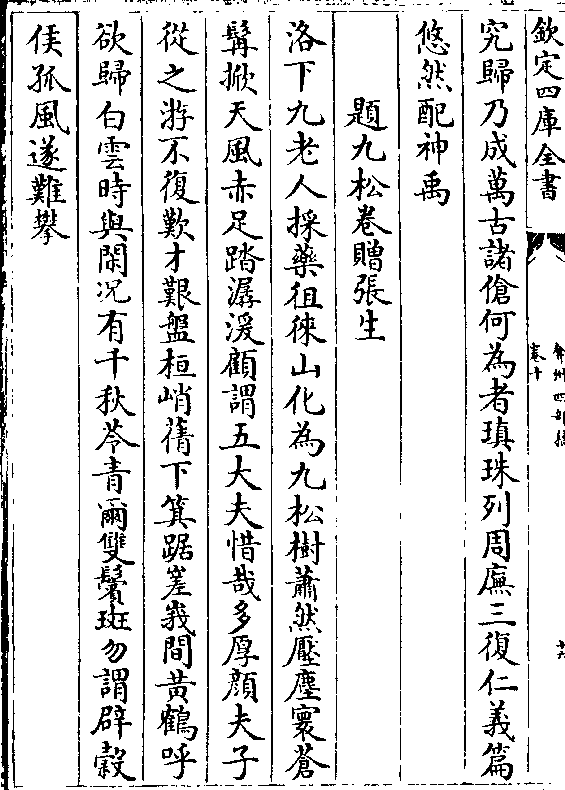 欽定四庫全書
弇州四部稿
卷十
究歸乃成萬古諸傖何為者瑱珠列周廡三復仁義篇
悠然配神禹
題九松卷贈張生
洛下九老人採藥徂徠山化為九松樹蕭然壓塵寰蒼
髯掀天風赤足踏潺湲顧謂五大夫惜哉多厚顔夫子
從之游不復歎才艱盤桓峭蒨下箕踞嵳峩間黃鶴呼
欲歸白雲時與閑况有千秋苓青爾雙鬢斑勿謂辟榖
侯孤風遂難攀